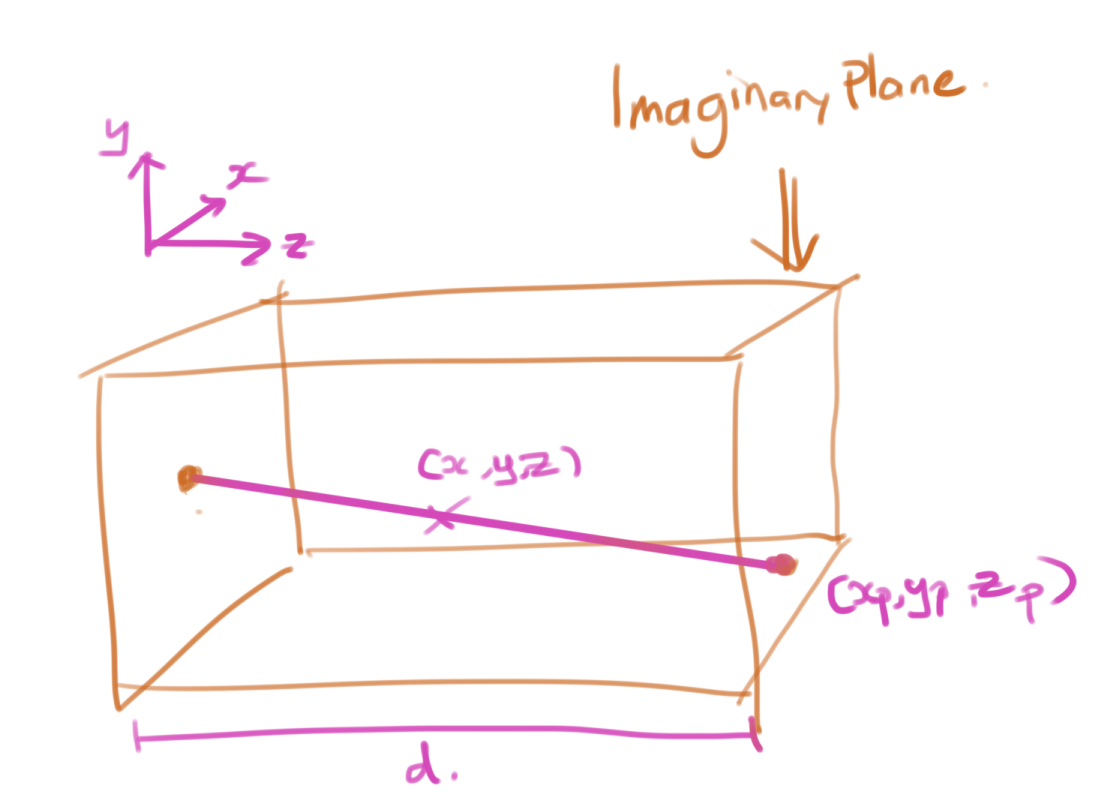 Imaginary Plane
y
x
z
(x,y,z)
(xp,yp,zp)
d.